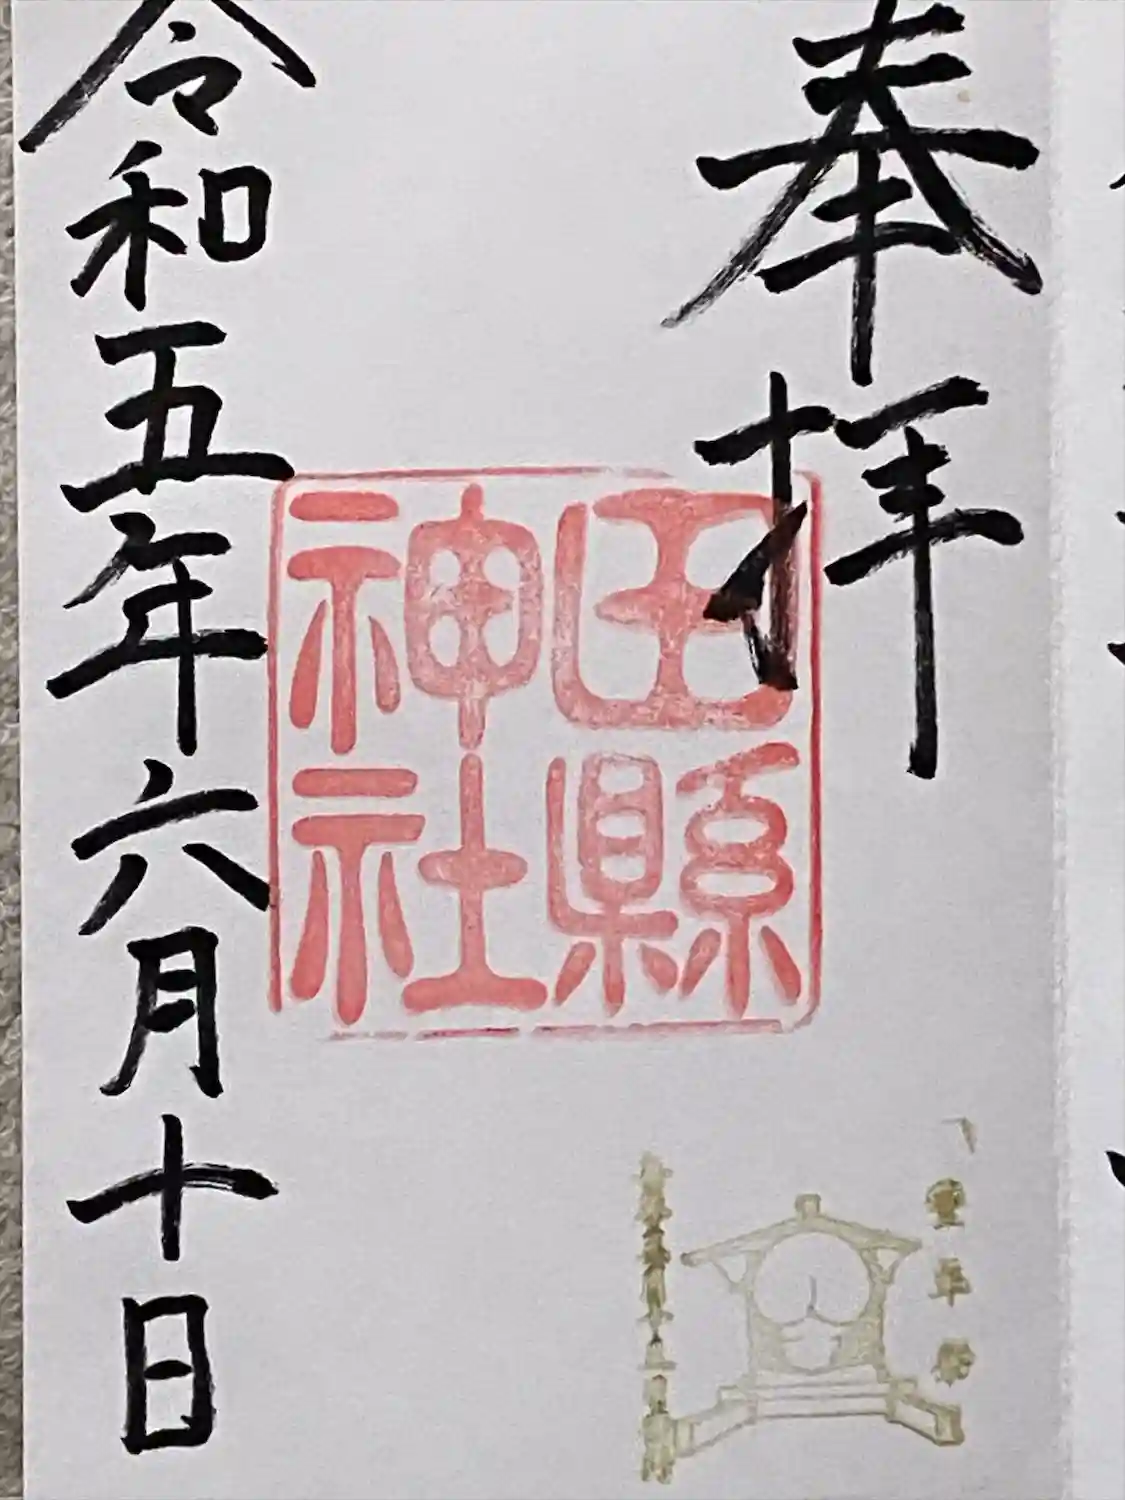 奉拝
田縣
神社
豊年祭
令和五年六月十日